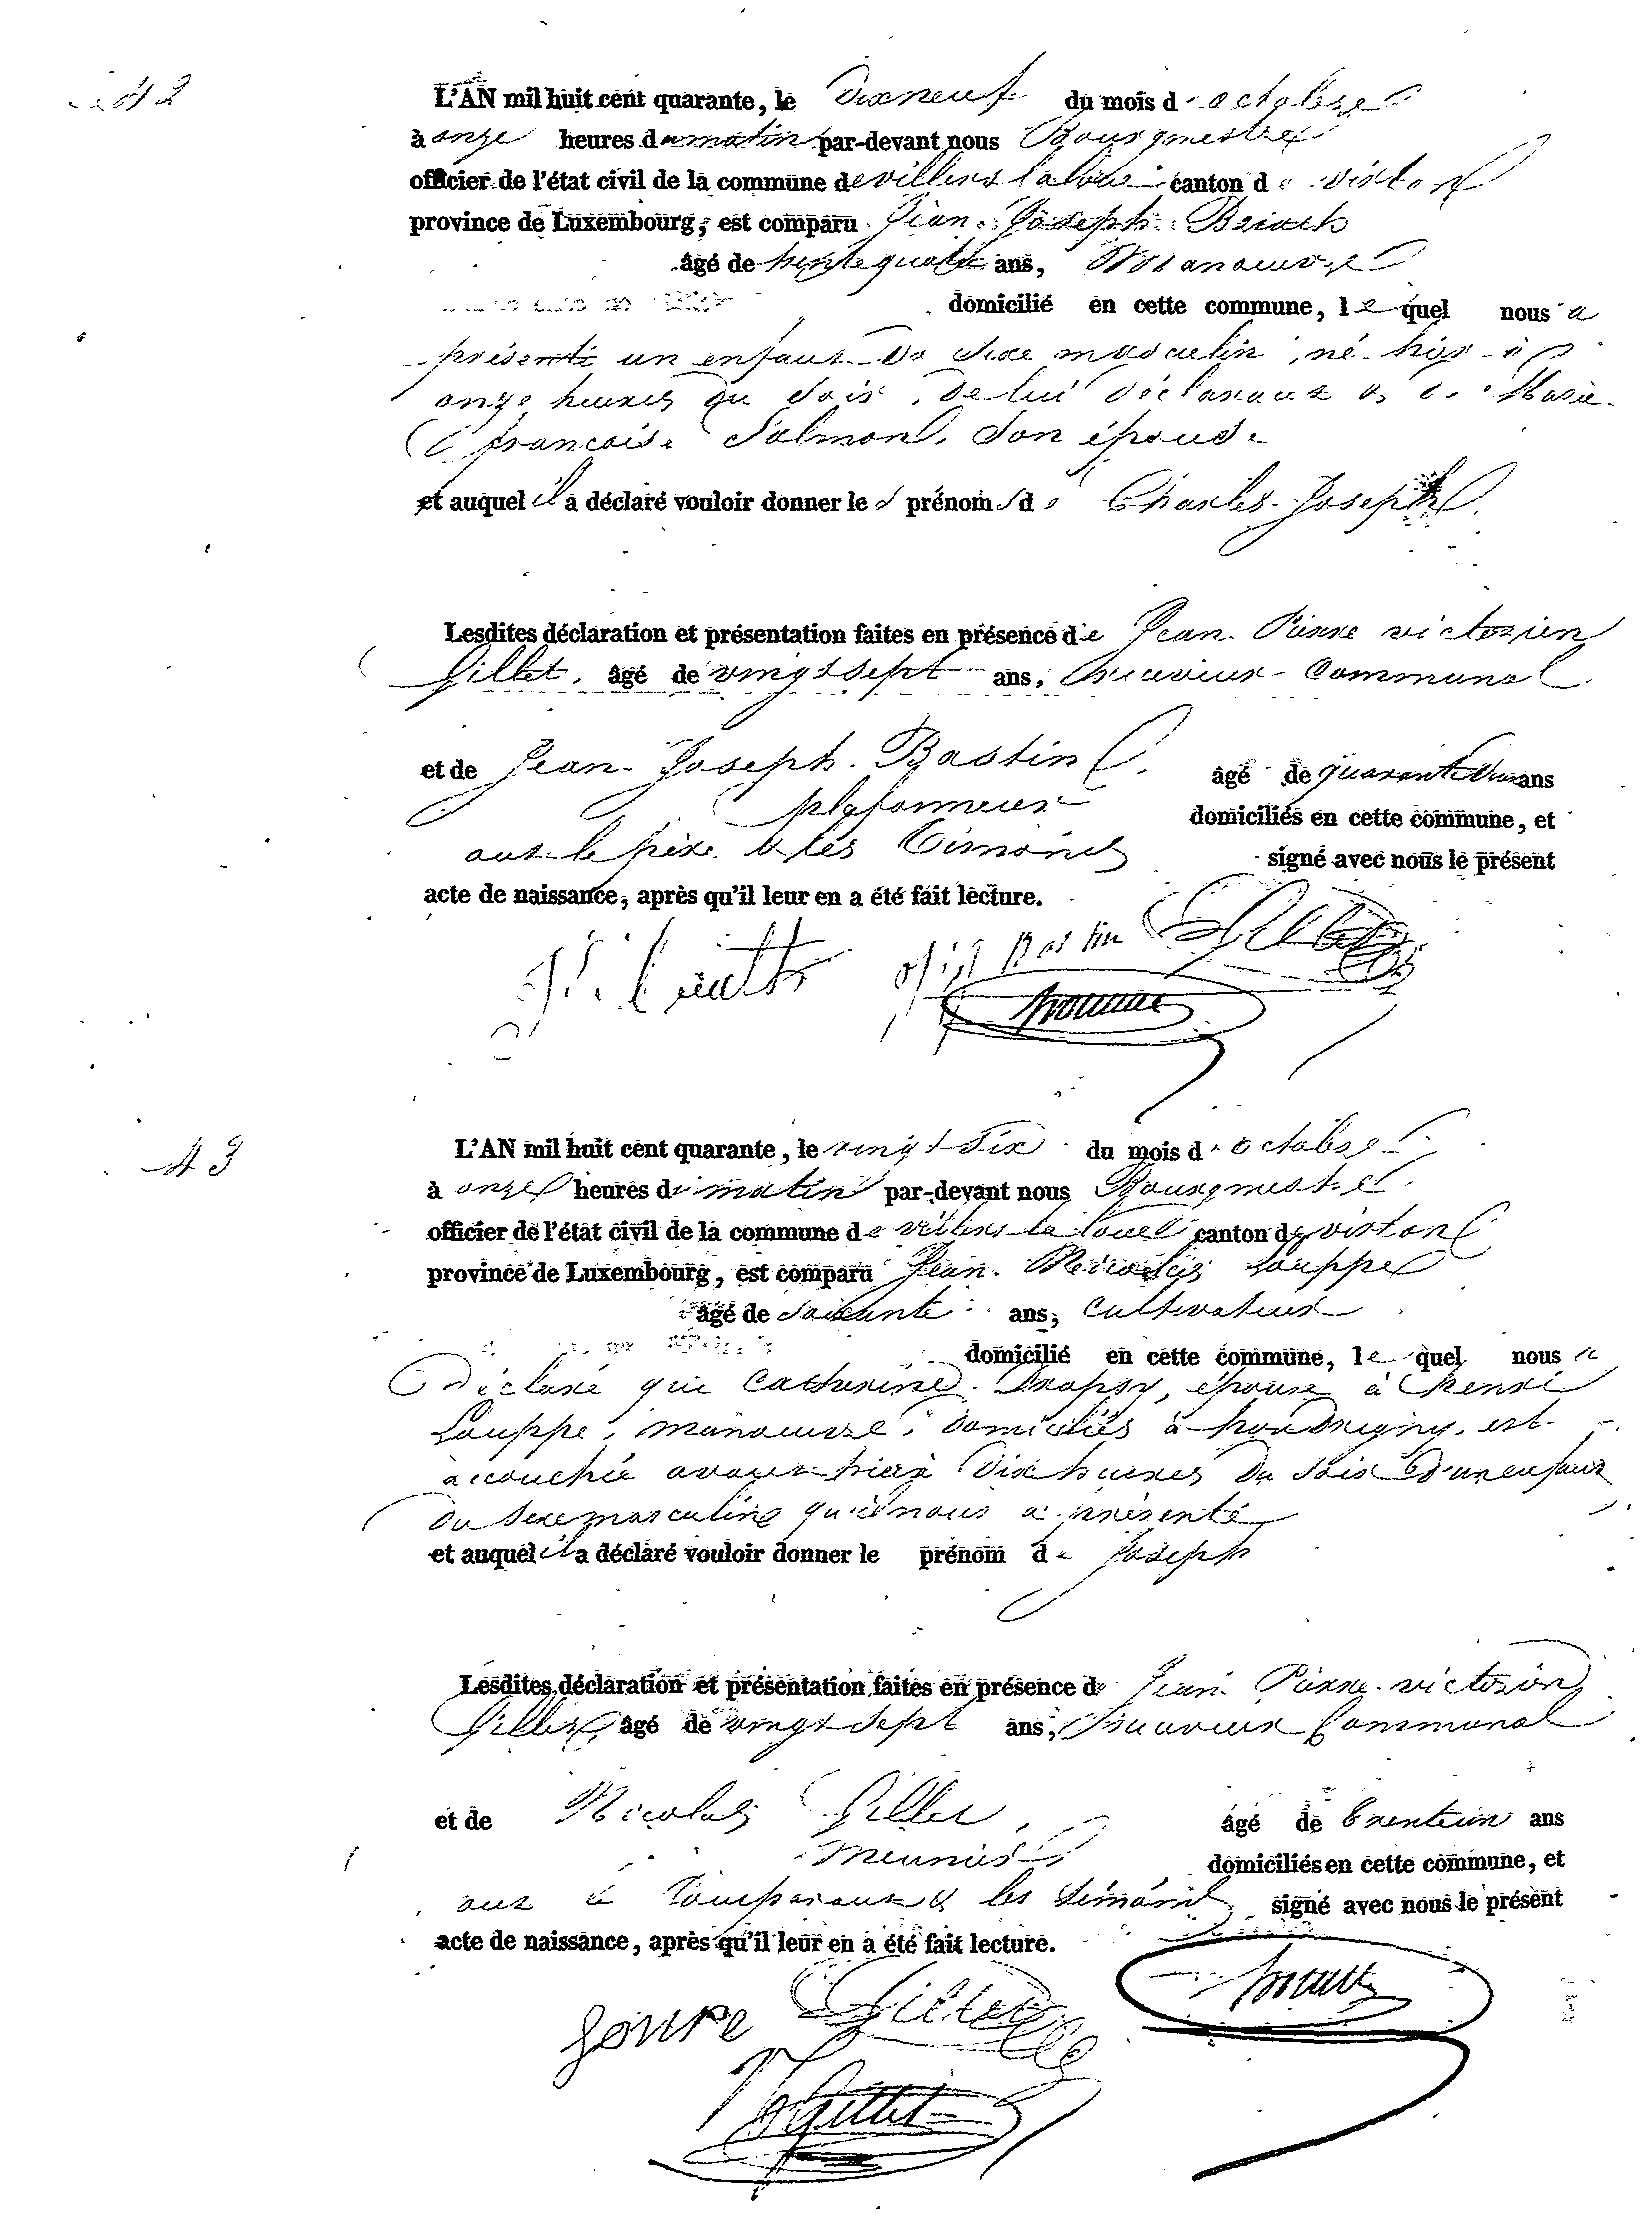 42
L'AN mil huit cent quarante, le dixneuf du mois d'octobre
à onze heures du matin par-devant nous Bourgmestre
officier de l'état civil de la commune de villers laloue canton de virton
province de Luxembourg, est comparu Jean Joseph
âgé de trente quatre ans, Manoeuvre
domicilié en cette commune, le quel nous a
présenté un enfant du sexe masculin, né hier à
onze heures du soir, de lui déclarant & de Marie
françoise Salmon, son épouse
et auquel il a déclaré vouloir donner les prénoms de Charles Joseph
Lesdites déclaration et présentation faites en présence de Jean Pierre victorien
Gillet, âgé de vingt sept ans, receveur Communal
et de Jean Joseph Bastin âgé de quarante deux ans
plafonneur domiciliés en cette commune, et
ont le père & les témoins signé avec nous le présent
acte de naissance, après qu'il leur en a été fait lecture.
Bastin Gillet
43
L'AN mil huit cent quarante, le vingt six du mois d'octobre
à onze heures du matin par-devant nous Bourgmestre
officier de l'état civil de la commune de villers la loue canton de virton
province de Luxembourg, est comparu Jean Nicolas Louppe
âgé de soixante ans, cultivateur
domicilié en cette commune, le quel nous a
déclaré que Catherine Dropsy, épouse à henri
Louppe, manoeuvre, domiciliés à houdrigny, est
accouchée avant hier à dix heures du soir d'un enfant
du sexe masculin qu'il nous a présenté
et auquel il a déclaré vouloir donner le prénom de Joseph
Lesdites déclaration et présentation faites en présence de Jean Pierre victorien
Gillet, âgé de vingt sept ans, receveur Communal
et de Nicolas Gillet, âgé de trente un ans
meunier domiciliés en cette commune, et
ont le comparant & les témoins signé avec nous le présent
acte de naissance, après qu'il leur en a été fait lecture.
Gillet
Gillet